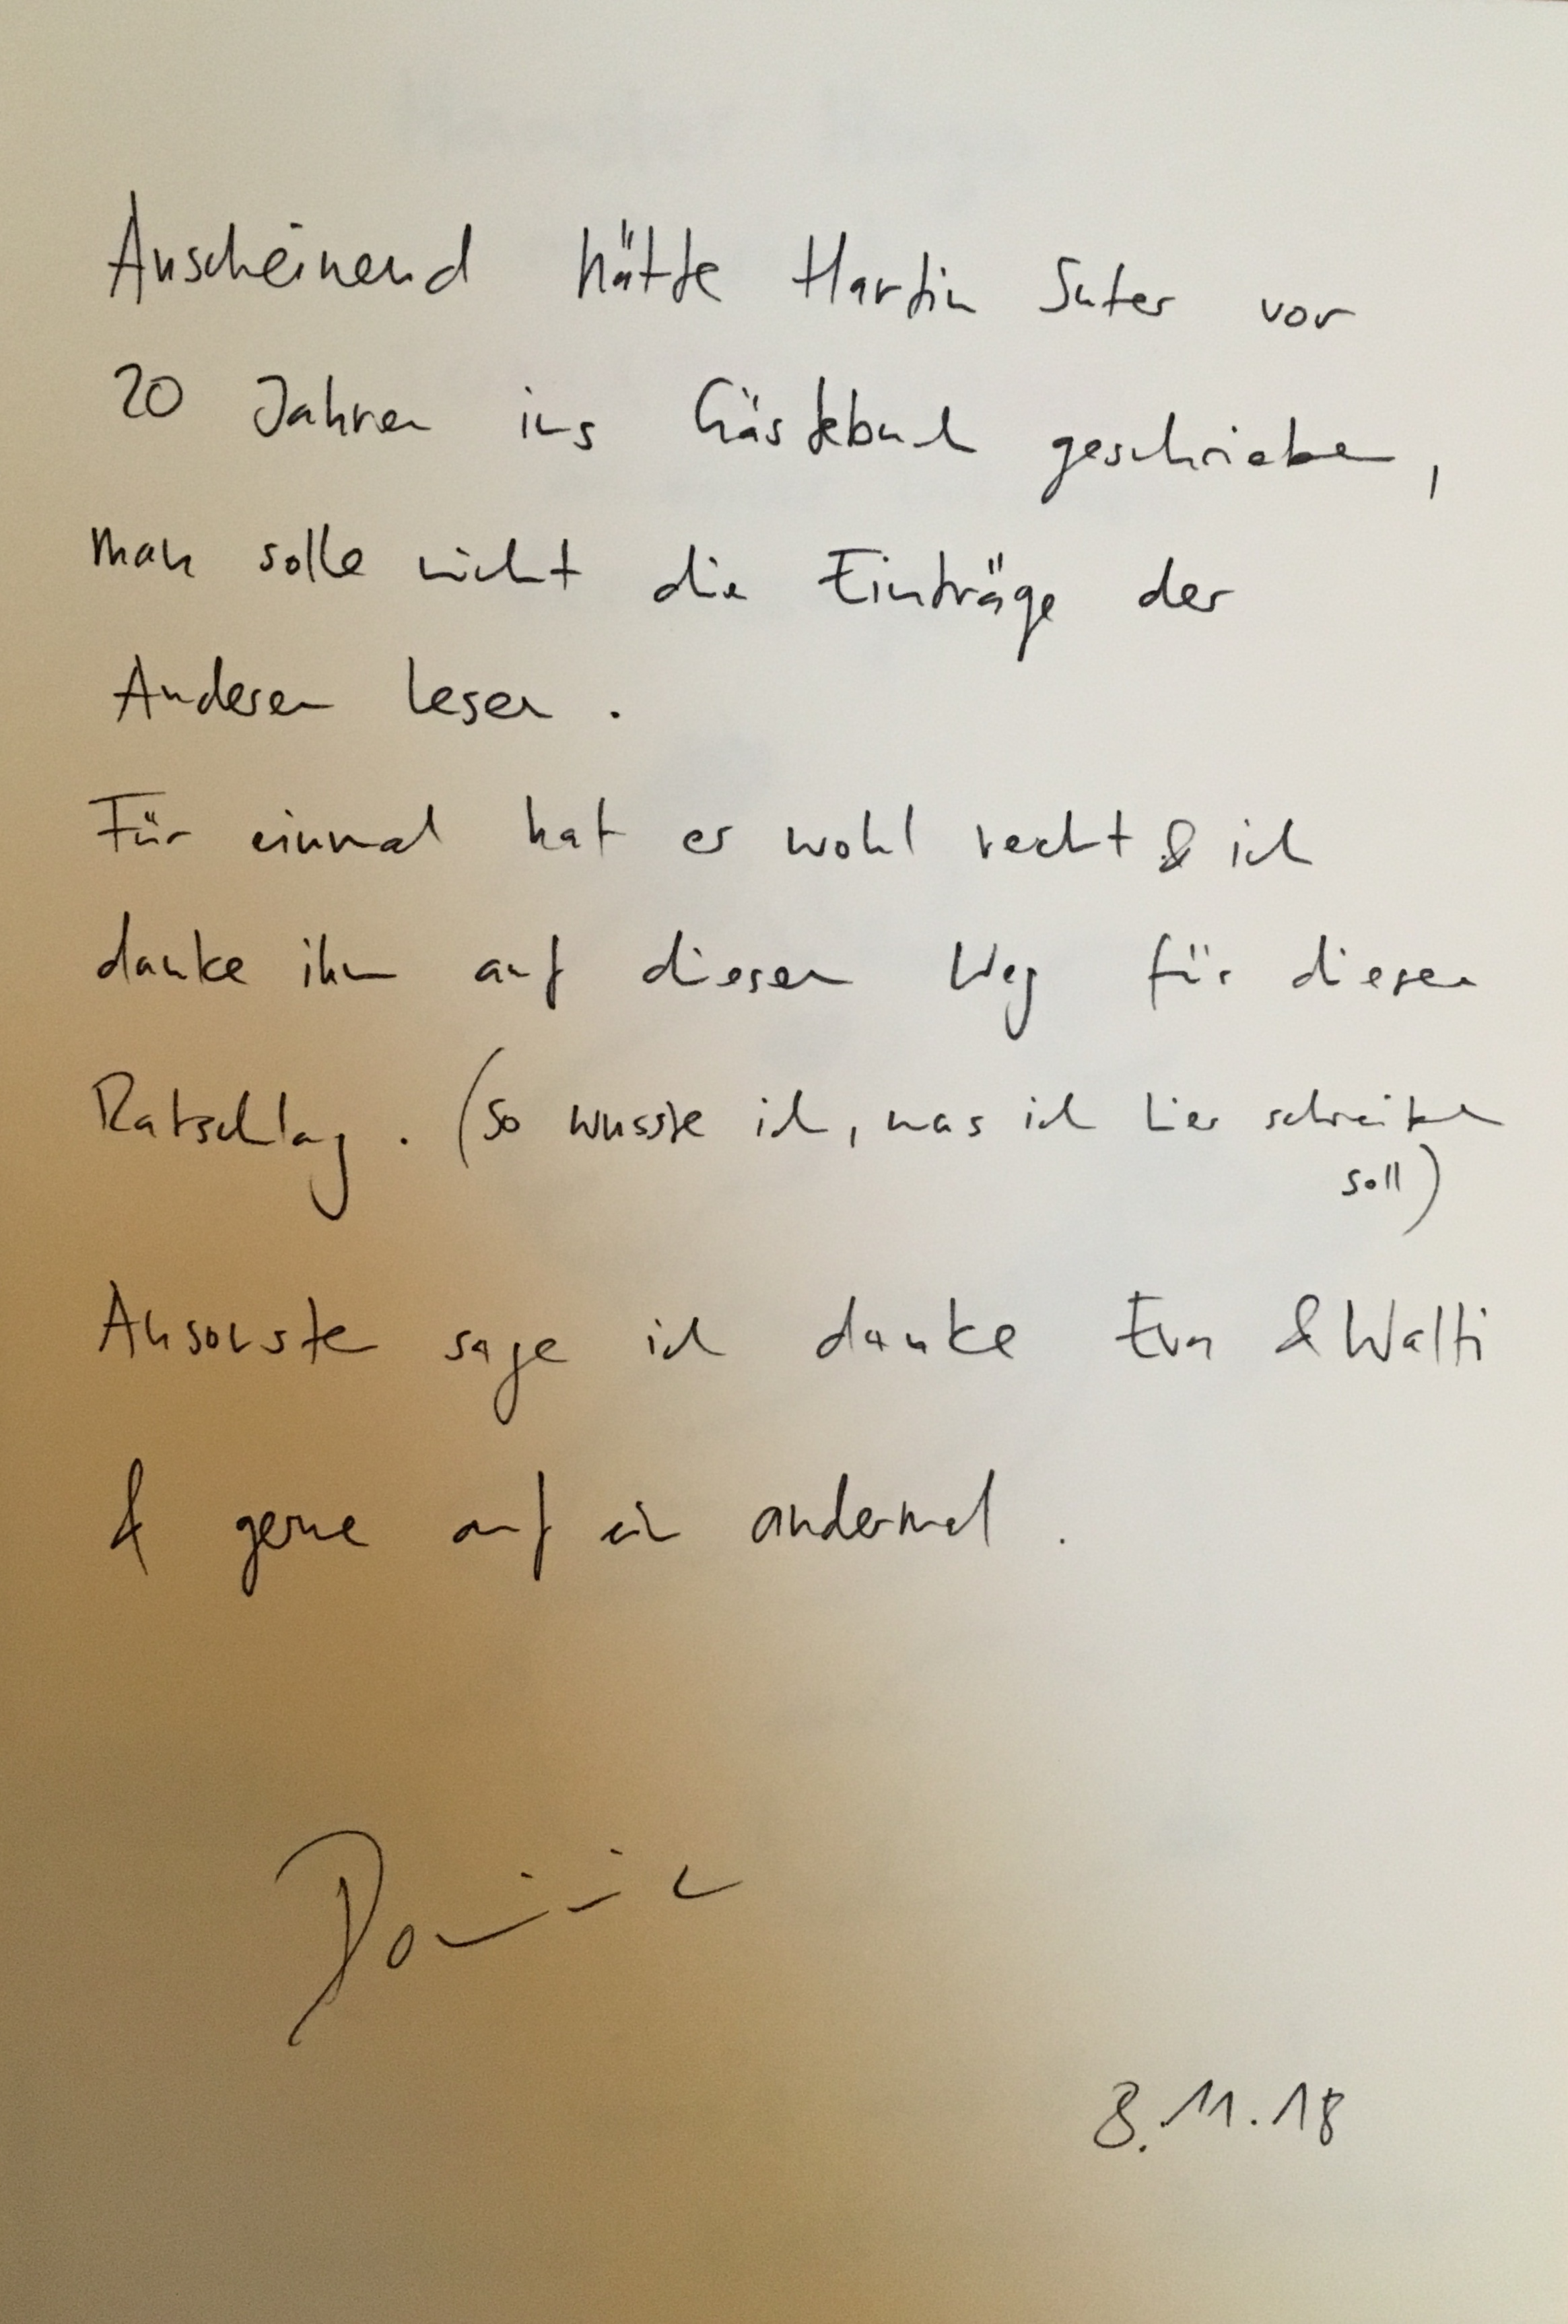 Anscheinend hätte Martin Suter vor
20 Jahren ins Gästebuch geschrieben,
man solle nicht die Einträge der
Anderen lesen.
Für einmal hat er wohl recht & ich
danke ihm auf diesen Weg für diesen
Ratschlag. (So wusste ich, was ich hier schreiben
soll)
Ansonsten sage ich danke Eva & Walti
& gerne auf ein andermal.
Dominic
8.11.18